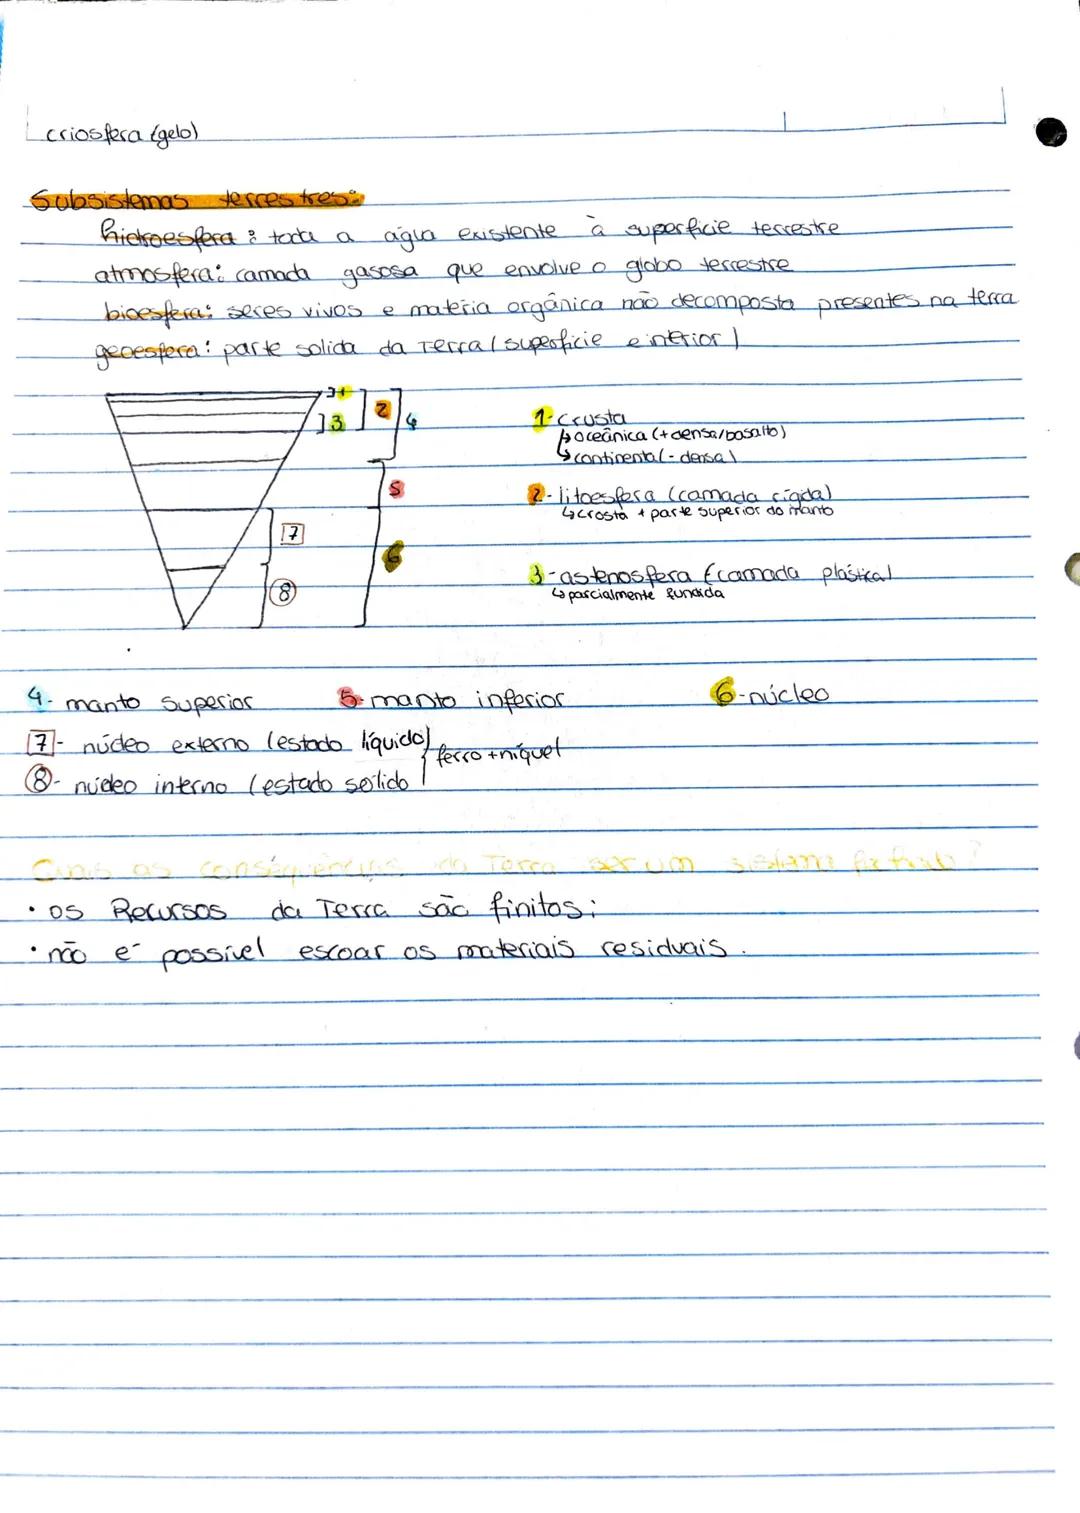 criosfera (gelo)
Subsistemas terrestres:
hidroesfera: toda a água existente à superficie terrestre
atmosfera: camada gasosa que envolve o globo terrestre
bioesfera: seres vivos e matéria orgânica não decomposta presentes na terra
geoesfera: parte solida da Terra (superficie e interior)
1
3
2
4
5
7
6
8
1-crusta
↳oceânica (+densa/basalto)
↳continental (-densa)
2-litoesfera (camada rígida)
↳crosta + parte superior do manto
3-astenosfera (camada plástica)
↳parcialmente fundida
4- manto superior 5-manto inferior 6-núcleo
7- núcleo externo (estado líquido)
8- núcleo interno (estado sólido
} ferro+níquel
Quais as conséquências da Terra ser um sistema fechado?
• os Recursos da Terra são finitos;
• não é possível escoar os materiais residuais.